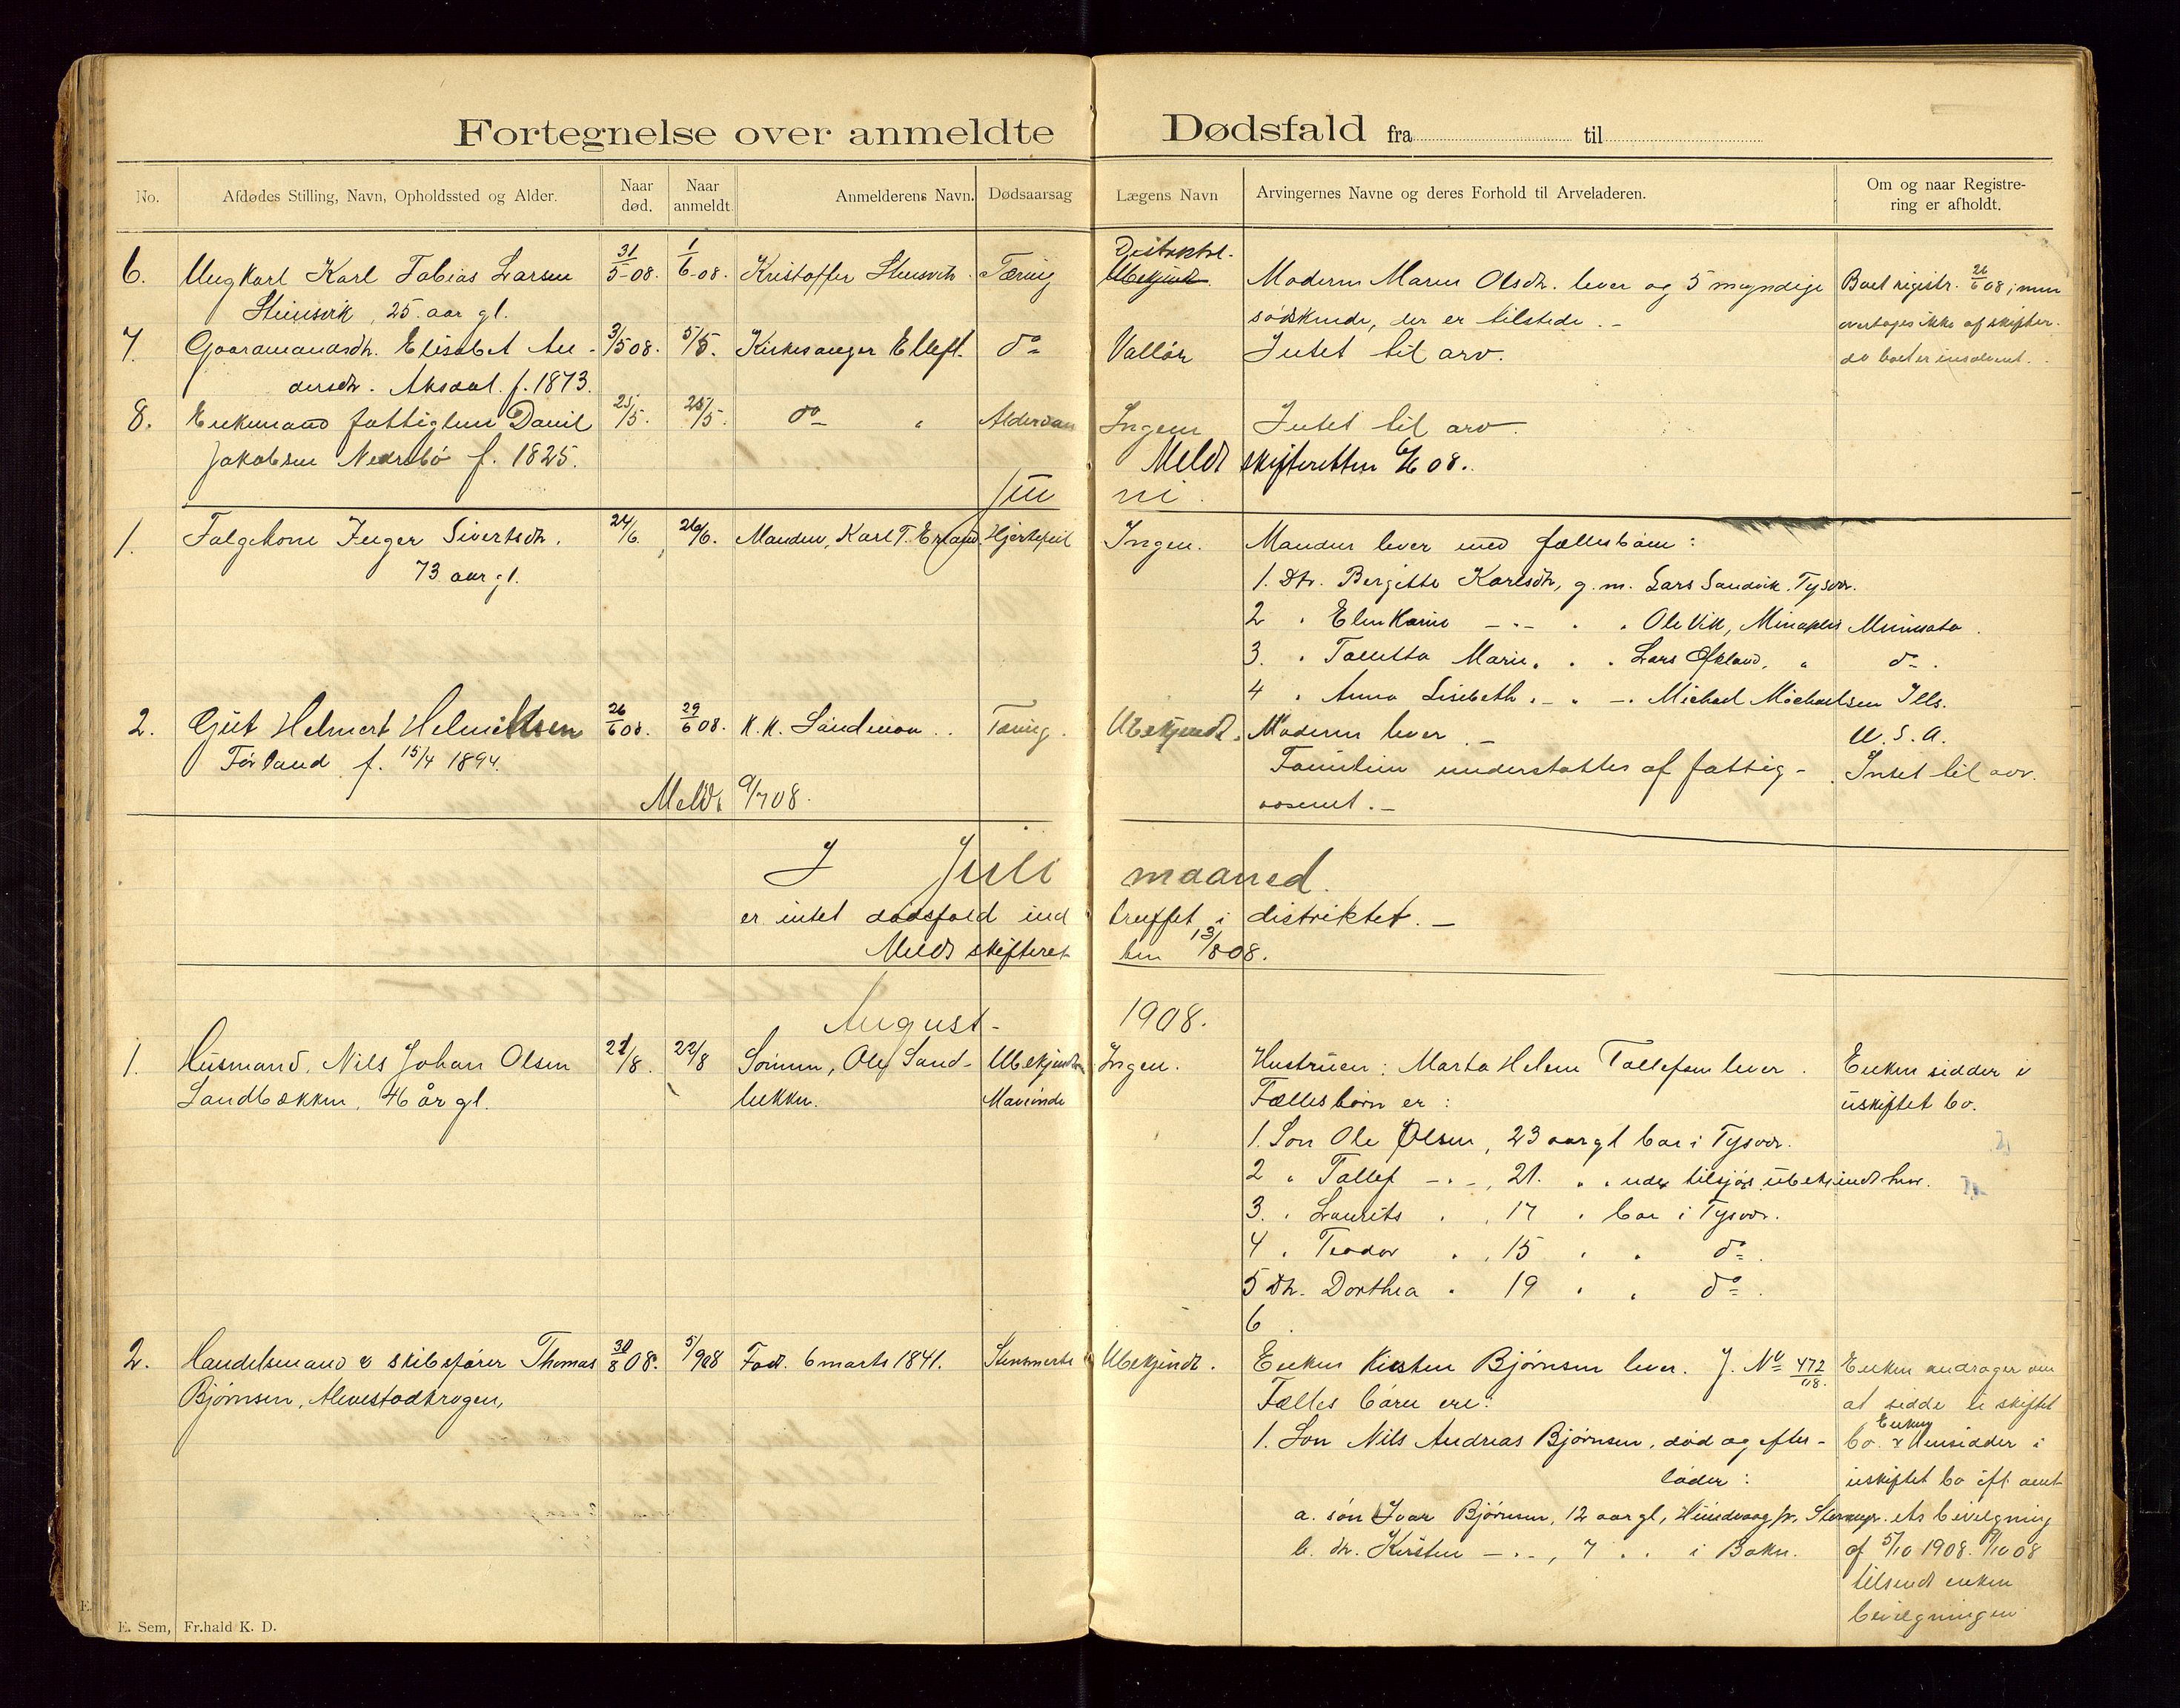 Fortegnelse over anmeldte Dødsfald fra til
No. Afdødes Stilling, Navn, Opholdssted og Alder. Naar død. Naar anmeldt. Anmelderens Navn. Dødsaarsag Lægens Navn Arvingernes Navne og deres Forhold til Arveladeren. Om og naar Registrering er afholdt.
6. Ungkarl Karl Tobias Larsen 31/5-08. 1/6-08. Kristoffer Stensvik. Tæring Moderen Maren Olsdtr. lever og 5 myndige Boet registr. 26/6 08, men
Steinsvik, 25 aar gl. sødskende, der er tilstede. - overtages ikke af skifter.
7. Gaardmandsdtr. Elisabet An- 3/5 08. 5/5. Kirkesanger Elleft. do Valløe Intet til arv. da boet er insolvent.
dersdtr. Aksdal. f. 1873.
8. Enkemand fattiglem Daniel 25/5. 25/5. do " Alderdom Ingen Intet til arv.
Jakobsen Nedrebø f. 1825. Meldt skifteretten 6/6 08.
Juni.
1. Folgekone Inger Sivertsdtr. 24/6. 26/6. Manden, Karl T. Erland Hjertefeil Ingen. Manden lever med fællesbørn:
73 aar gl. 1. Dtr. Bergitte Karlsdtr, g. m. Lars Sandvik. Tysvær.
2 " Elen Karine -"- " " Ole Vik, Minaplis Minnesota.
3. " Tolletta Marie " " " Lars Økland, " do.
4 " Anna Lisebeth " - " - " Michael Michaelsen Ills.
2. Gut Helmert Helmiksen 26/6 08. 29/6 08. K. K. Sandmoa .. Tæring. Ubekjendt. Moderen lever. - U. S. A.
Førland f. 15/4 1894. Familien understøttes af fattig- Intet til arv.
Meldt 9/7 08. væsenet. -
I Juli maaned.
er intet dødsfald indtruffet i distriktet. -
Meldt skifteretten 13/8 08.
August - 1908.
1. Husmand, Nils Johan Olsen 21/8. 22/8 Sønnen, Ole Sand- Ubekjendt Ingen. Hustruen: Marta Helene Tollefsen lever. Enken sidder i
Sandbekken, 46 år gl. bekken. Maveonde Fællesbørn er: uskiftet bo.
1. Søn Ole Olsen, 23 aar gl bor i Tysvær.
2 " Tollef -"-, 21. " " ude tilsjøs ubekjendt hvor.
3. " Laurits " , 17 " bor i Tysvær.
4 " Teodor " , 15 " " do.
5 Dtr. Dorthea " 19 " " do.
6.
2. Handelsmand & skibsfører Thomas 30/8 08. 5/9 08 Født. 6 marts 1841. Stensmerte Ubekjendt. Enken Kirsten Bjørnsen lever. J. No 472/08. Enken andrager om
Bjørnsen, Alvestadkrogen, Fælles børn ere: at sidde i uskiftet
1. Søn Nils Andreas Bjørnsen, død og efter- bo. Enken hensidder i
lader: uskiftet bo ifl. amt
a. søn Ivar Bjørnsen, 12 aar gl, Hundvaag pr. Stavanger. ets bevilgning
b. dtr. Kirsten -"-, 7 " " i Bokn. af 5/10 1908. 9/10 08
tilsendt enken
bevilgningen
E. Sem, Fr.hald K. D.